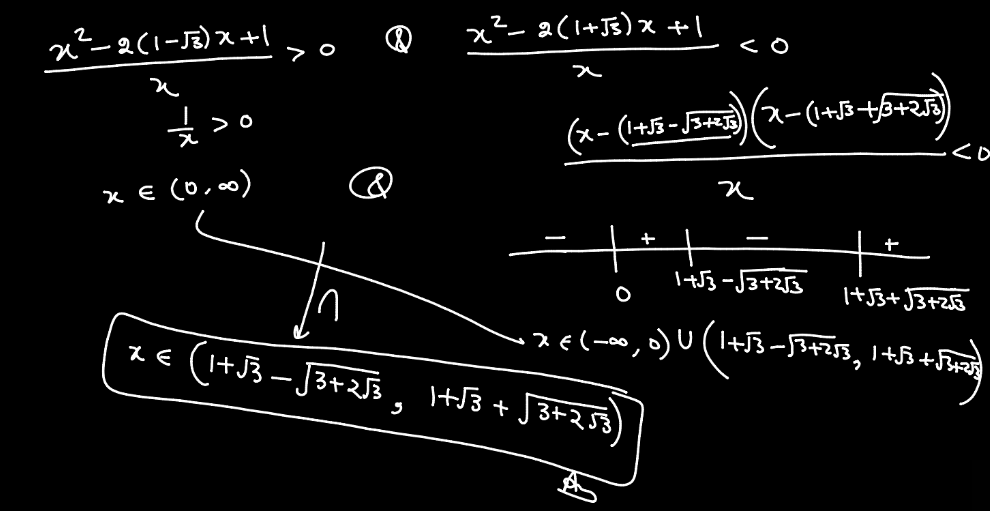 (x² - 2(1-√3)x + 1)/x > 0 & (x² - 2(1+√3)x + 1)/x < 0
1/x > 0
((x - (1+√3 - √(3+2√3)))(x - (1+√3 + √(3+2√3))))/x < 0
x ∈ (0, ∞) &
- + - +
0 1+√3 - √(3+2√3) 1+√3 + √(3+2√3)
∩
x ∈ (-∞, 0) ∪ (1+√3 - √(3+2√3), 1+√3 + √(3+2√3))
x ∈ (1+√3 - √(3+2√3), 1+√3 + √(3+2√3))